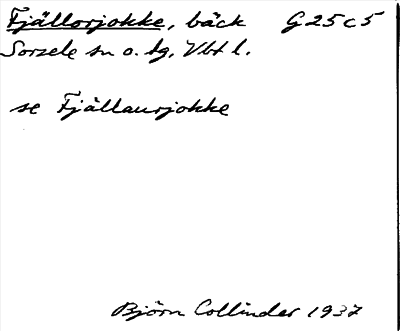 Fjällorjokke, bäck G 25 c 5
Sorsele sn o. lg, Vbt l.
se Fjällaurjokke
Björn Collinder 1937